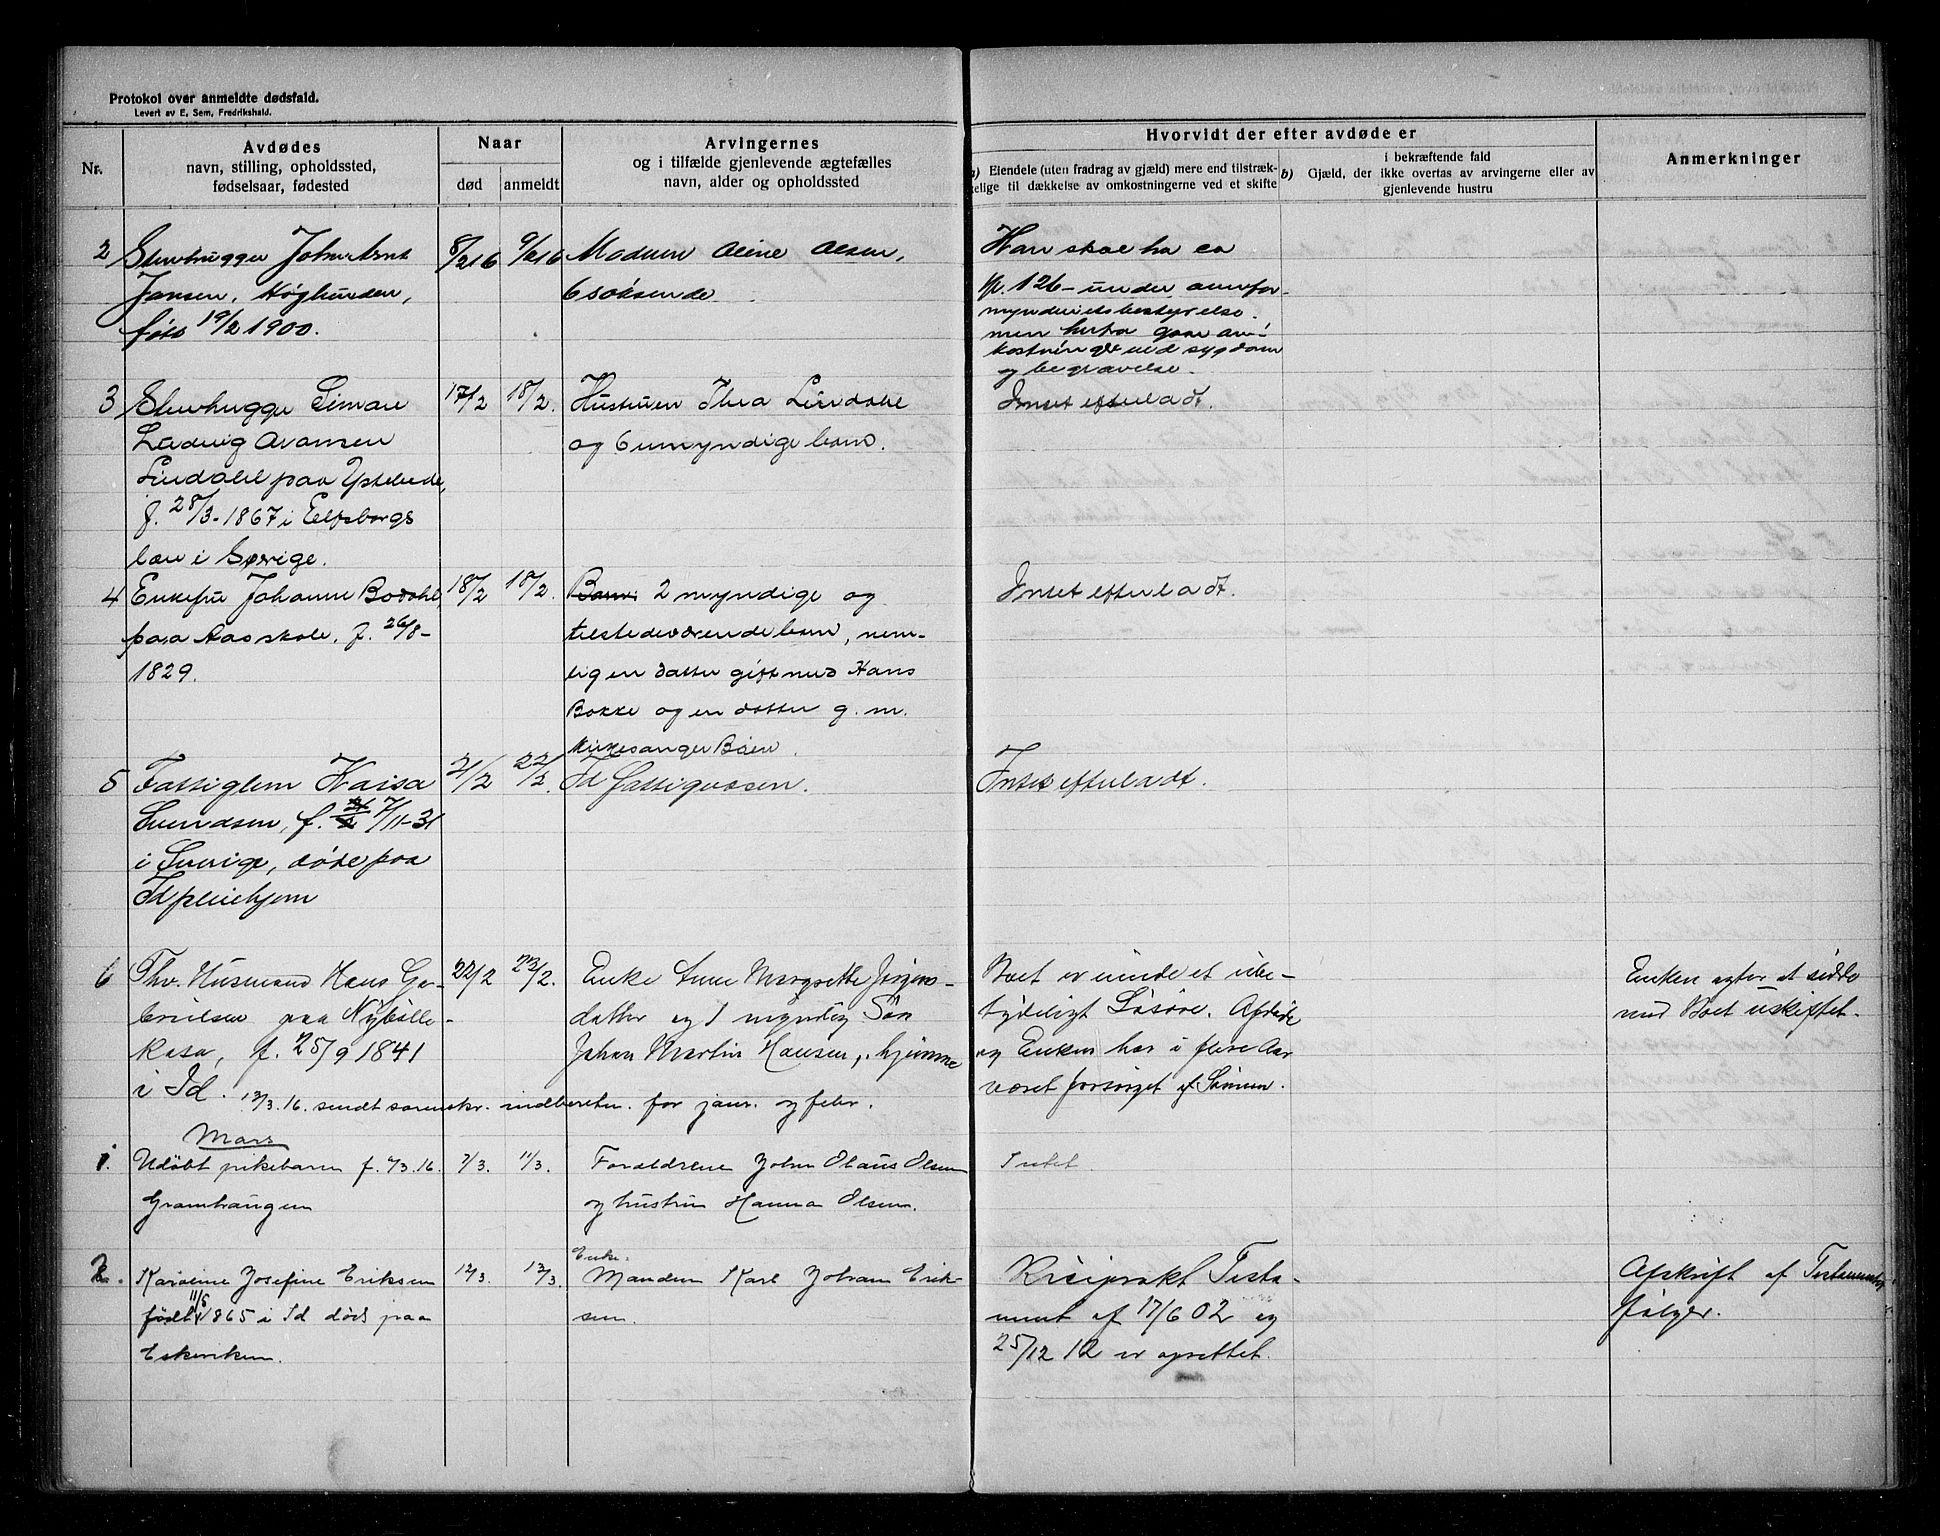 Protokol over anmeldte dødsfald.
Levert av E. Sem, Fredrikshald.
Nr.
Avdødes
navn, stilling, opholdssted,
fødselsaar, fødested
Naar
død
anmeldt
Arvingernes
og i tilfælde gjenlevende ægtefælles
navn, alder og opholdssted
Hvorvidt der efter avdøde er
a) Eiendele (uten fradrag av gjæld) mere end tilstræk-
kelige til dækkelse av omkostningerne ved et skifte
i bekræftende fald
b) Gjæld, der ikke overtas av arvingerne eller av
gjenlevende hustru
Anmerkninger
2
Stenhugger John Arnt
Jansen, Høglunden,
født 19/2 1900.
8/2 16
9/2 16
Moderen Oline Olsen,
6 søksende
Han skal ha ca
kr. 126 - under overfor-
mynderiets bestyrelse.
men herfra gaar om-
kostninger ved sygdom
og begravelse.
3
Stenhugger Simon
Ludvig Avansen
Lindahl paa Ystehede,
f. 28/3-1867 i Elfsborgs
læn i Sverige.
17/2
18/2.
Hustruen Thea Lindahl
og 6 umyndige barn.
Intet efterladt.
4
Enkefru Johanne Bodahl
paa Aas skole, f. 26/8-
1829.
18/2
18/2.
Barn: 2 myndige og
tilstedeværende barn, nem-
lig en datter gift med Hans
Bokke og en datter g. m.
kirkesanger Bøen.
Intet efterladt.
5
Fattiglem Kaisa
Svendsen, f. 7/11-31
i Sverige, døde paa
Id pleiehjem
21/2
22/2.
Id fattigvæsen.
Intet efterladt.
6
Fhv. Husmand Hans Ga-
brielsen paa Nybølle-
kasa, f. 25/9 1841
i Id.
22/2
23/2.
Enke Anne Margrethe Jørgens-
datter og 1 myndig Søn
Johan Martin Hansen, hjemme
Boet er uinde et ube-
tydeligt Løsøre. Afdøde
og Enken har i flere Aar
været forsørget af Sønnen.
Enken agter at sidde
med Boet uskiftet.
13/3. 16. sendt sorenskr. indberetn. for janr. og febr.
Mars
1.
Udøbt pikebarn f. 7/3. 16.
Gramhaugen
7/3.
11/3.
Forældrene John Olaus Olsen
og hustru Hanna Olsen.
Intet.
2.
Karoline Josefine Eriksen
født 11/5 1865 i Id døds paa
Eskeviken.
12/3.
13/3.
Enke.
Manden Karl Johan Erik-
sen.
Resiprokt Testa-
ment af 17/6 02 og
25/12 12 er oprettet.
Afskrift af Testamentet
følger.